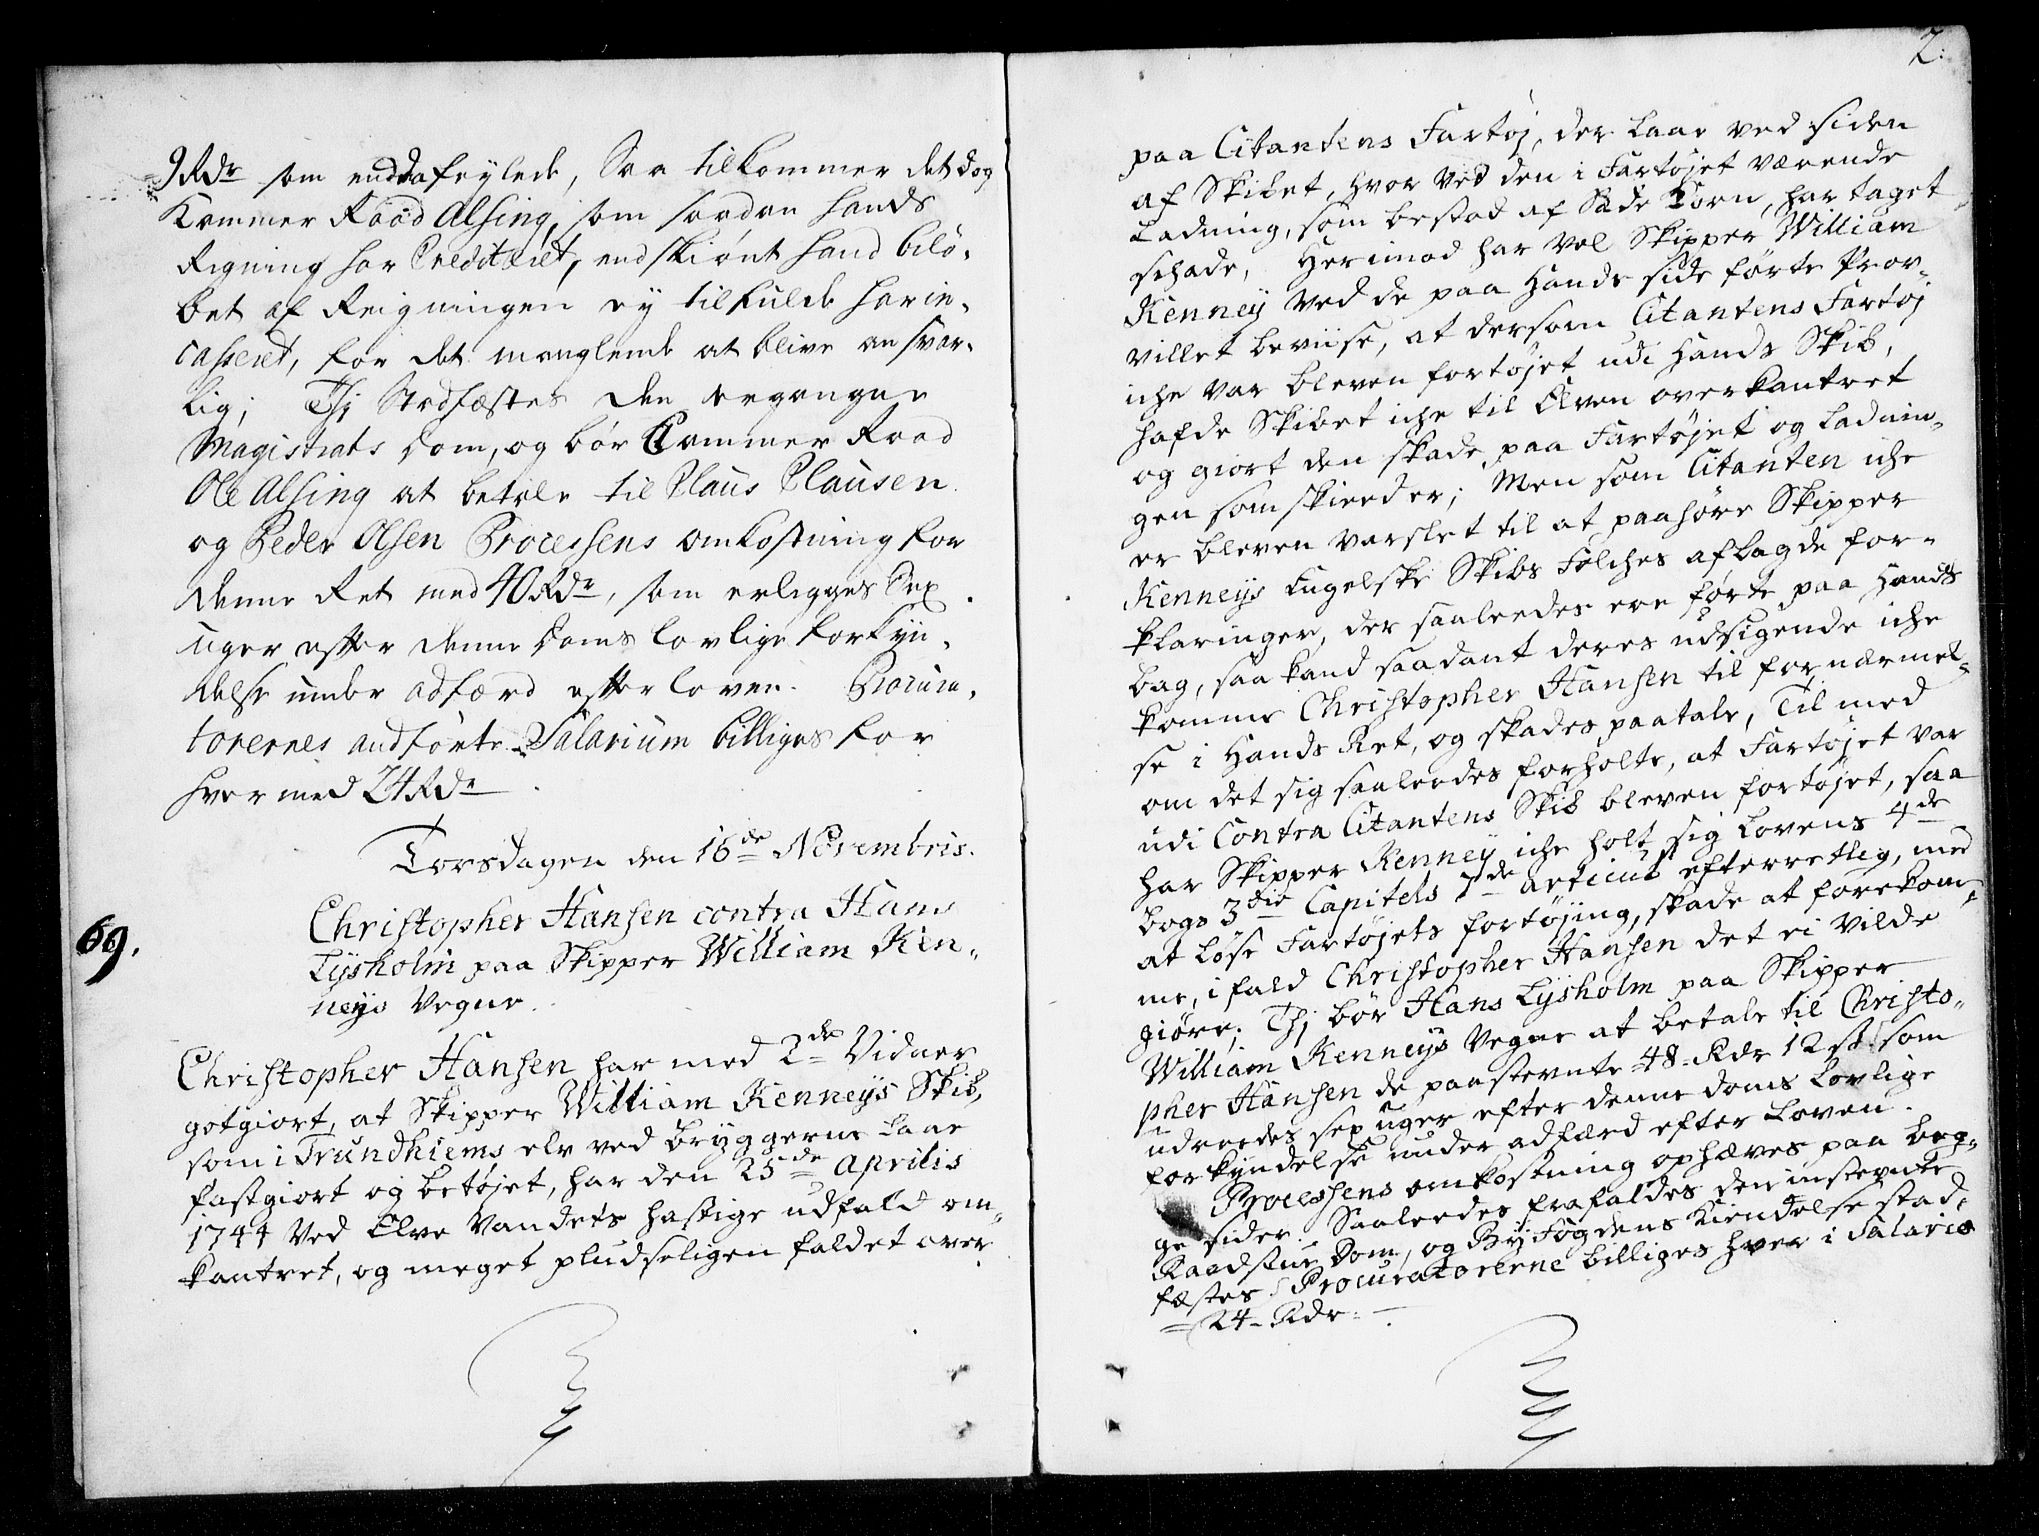 9 Rdr som endda feylede, Saa tilkommer det dog
Kammer Raad Alsing, som saadan hands
Regning har Crediteret, endskiønt hand belø-
bet af Reigningen ey tilfulde har in-
casseret, for det manglende at blive ansvar-
lig; Thj Stadfæstes den ergangne
Magistrats Dom, og bør Cammer Raad
Ole Alsing at betale til Claus Clausen
og Peder Olsen Processens omkostning for
denne Ret med 40 Rdr, som erlegges Sex
uger efter denne Doms lovlige forkyn-
delse under adfærd efter loven. Procura-
torernes andførte Salarium billiges for
hver med 24 Rdr
Torsdagen den 16de Novembris.
69.
Christopher Hansen contra Hans
Lysholm paa Skipper William Ken-
neys Vegne.
Christopher Hansen har med 2de Vidner
gotgiort, at Skipper William Kenneys Skib,
som i Trundhiems elv ved Bryggerne laae
fastgiort og betøjet, har den 25de Aprilis
1744 Ved Elve Vandets hastige udfald om-
kantret, og meget pludseligen faldet over
2.
paa Citantens Fartøj, der laae ved siden
af Skibet, hvor Ved den i Fartøjet værende
Ladning, som bestod af Sæde Korn, har taget
schade, Herimod har vel Skipper William
Kenney Ved de paa Hands side førte Prov
villet beviise, at dersom Citantens Fartøj
iche var bleven fortøjet udi Hands Skib,
hafde Skibet iche til Elven overkantret
og giort den skade paa Fartøjet og Ladnin-
gen som skeeder; Men som Citanten iche
er bleven varslet til at paahøre Skipper
Kenneys Engelske Skibs Folches aflagde for-
klaringer, der saaleedes ere førte paa Hands
bag, saa kand saadant deres udsigende iche
komme Christopher Hansen til fornærmel-
se i Hands Ret, og skades paatale, Til med
om det sig saaleedes forholte, at Fartøjet var
udi Contra Citantens Skib bleven fortøjet, saa
har Skipper Kenney iche holt sig Lovens 4de
bogs 3die Capitels 7de articul efterretlig, med
at løse Fartøjets fortøjing, skade at forekom-
me, i fald Christopher Hansen det ei Vilde
giøre; Thj bør Hans Lysholm paa Skipper
William Kenneys Vegne at betale til Christo-
pher Hansen de paastevnte 48 Rdr 12 s: som
udreedes sex uger efter denne doms Lovlige
forkyndelse under adfærd efter Loven.
Processens omkostning ophæves paa beg-
ge sider. Saaleedes frafaldes den instevnte
Raadstue Dom, og By Fogdens Kiendelse stad-
fæstes. Procuratorerne billiges hver i Salario
24 Rdr.